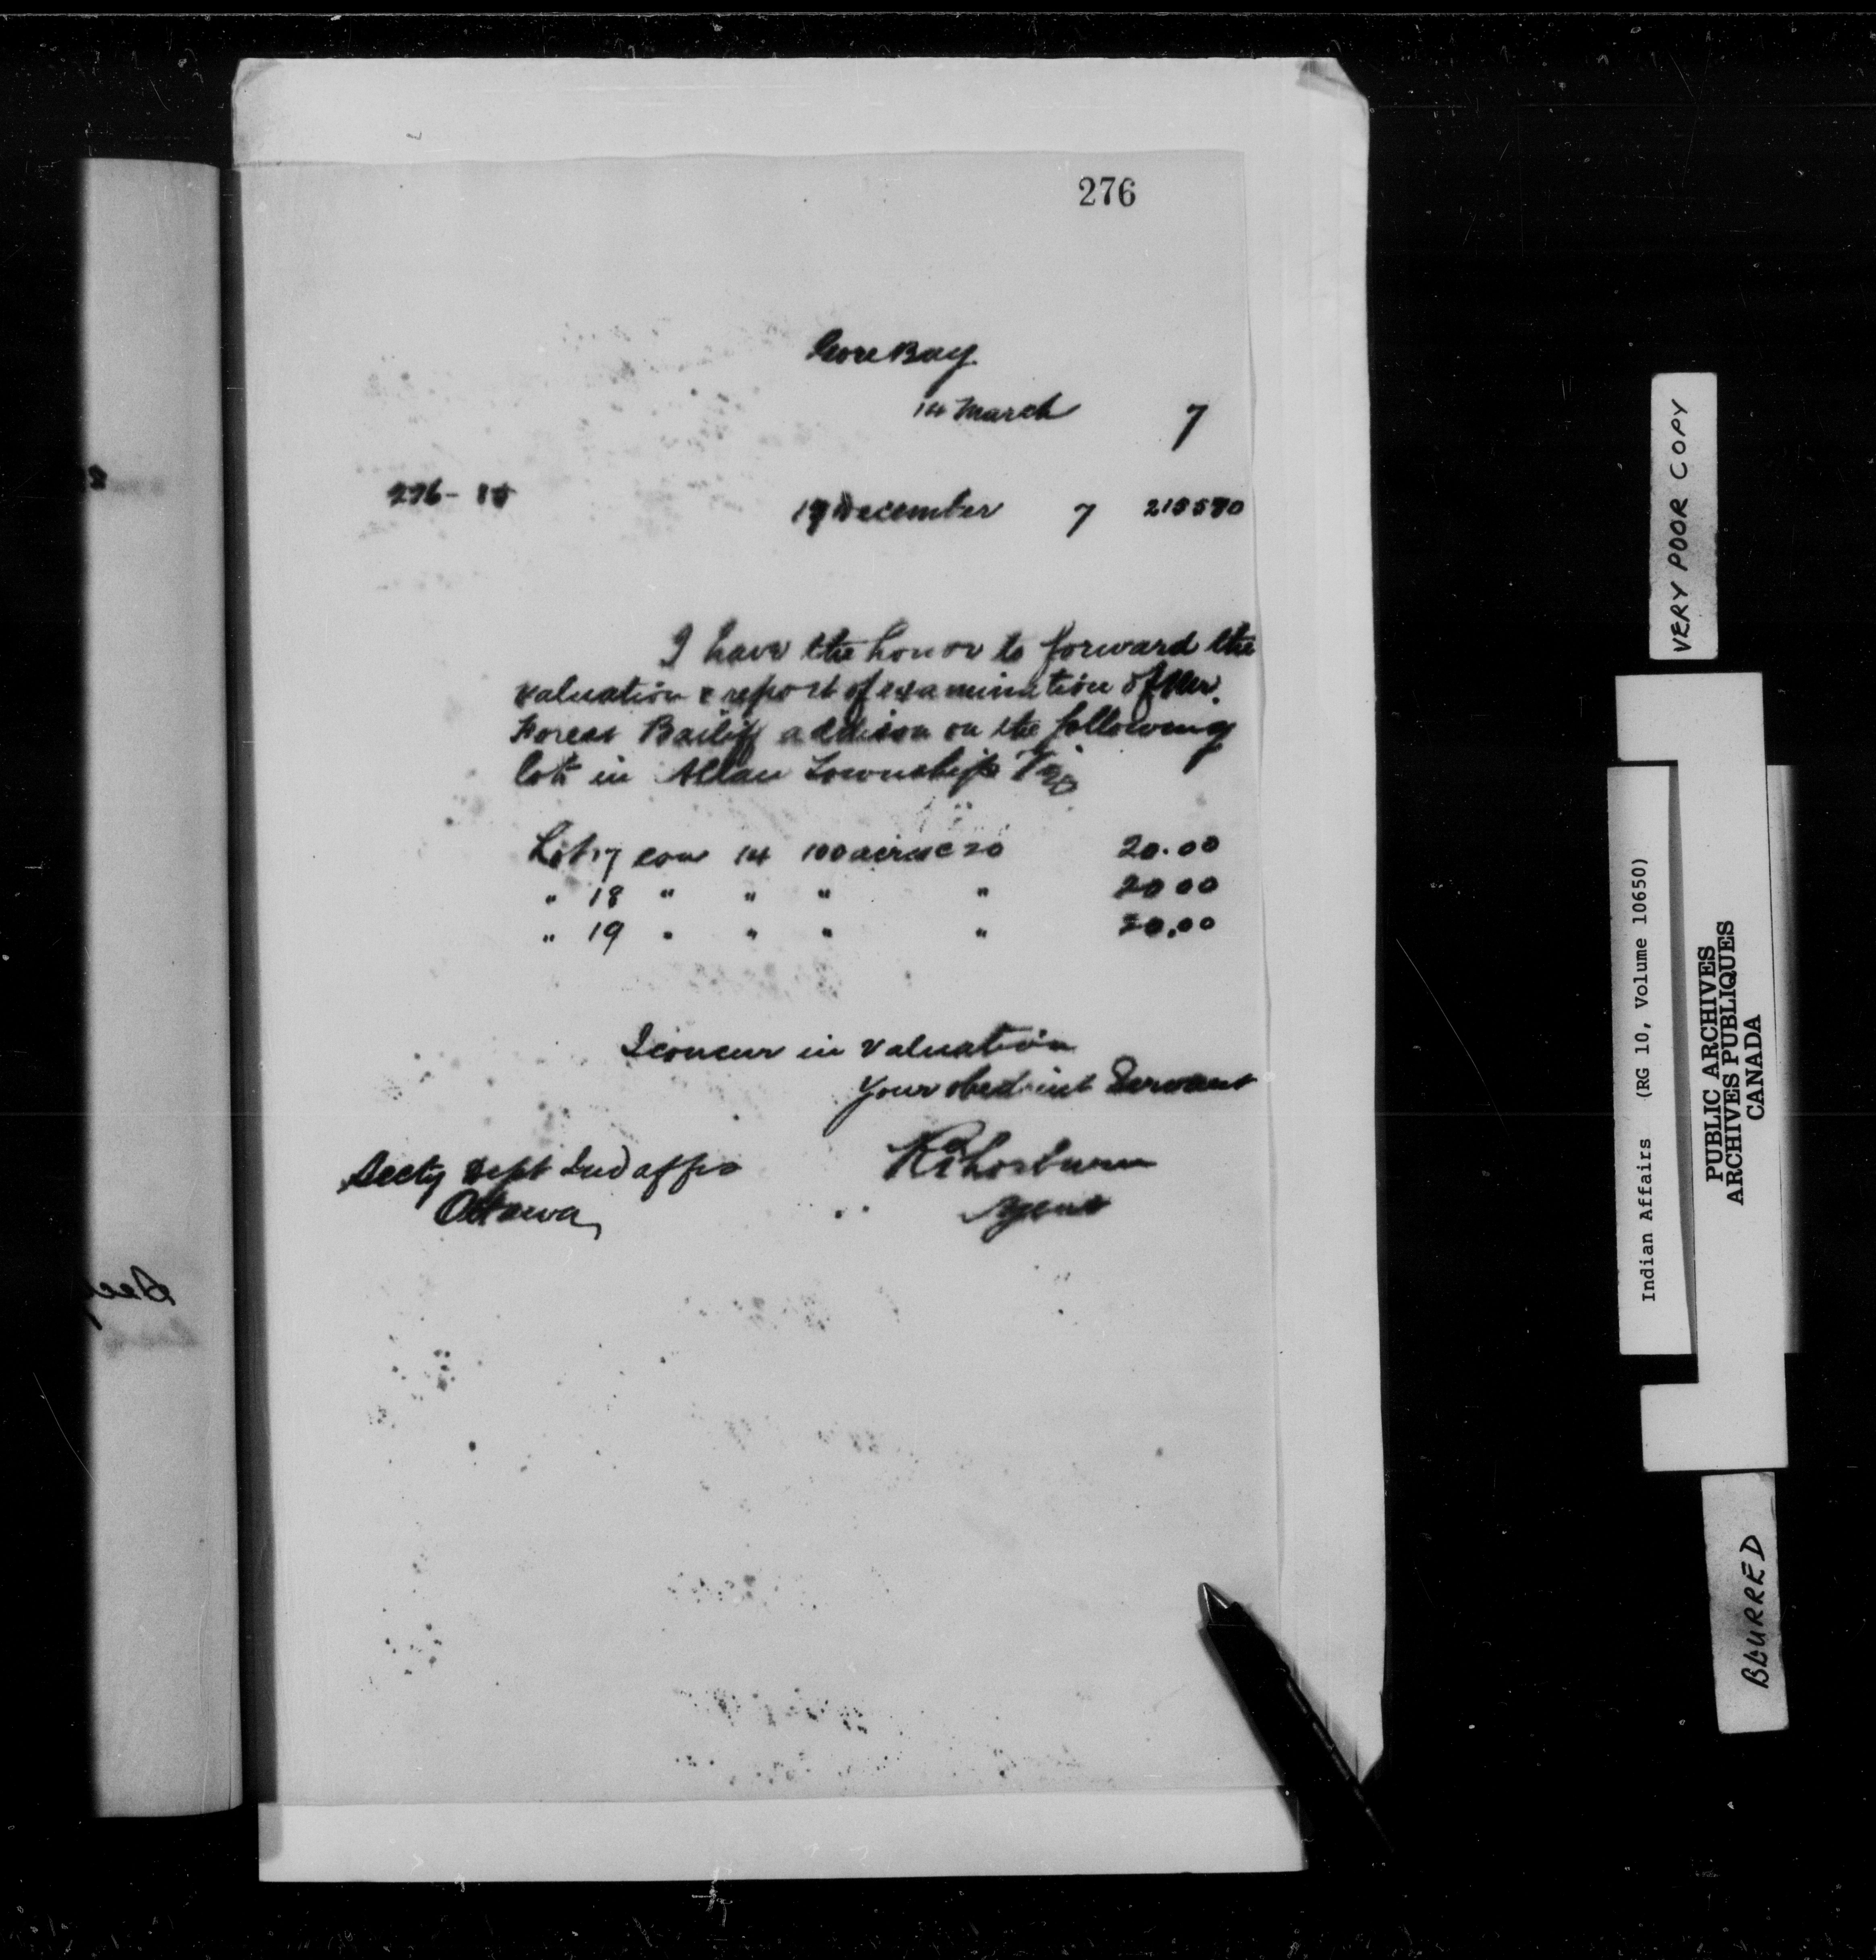 276
Gore Bay
14 March 7
276 - 10
19 December 7 215570
I have the honor to forward the
valuation & report of examination of Mr.
Forest Bailiff addison on the following
lots in Allan Township Viz
Lot 17 con 14 100 acres @ 20 20.00
" 18 " " " " 20 00
" 19 " " " " 20.00
I concur in valuation
Your obedient Servant
Secty Dept Ind affrs
Ottawa
Agent
VERY POOR COPY
Indian Affairs (RG 10, Volume 10650)
PUBLIC ARCHIVES
ARCHIVES PUBLIQUES
CANADA
BLURRED